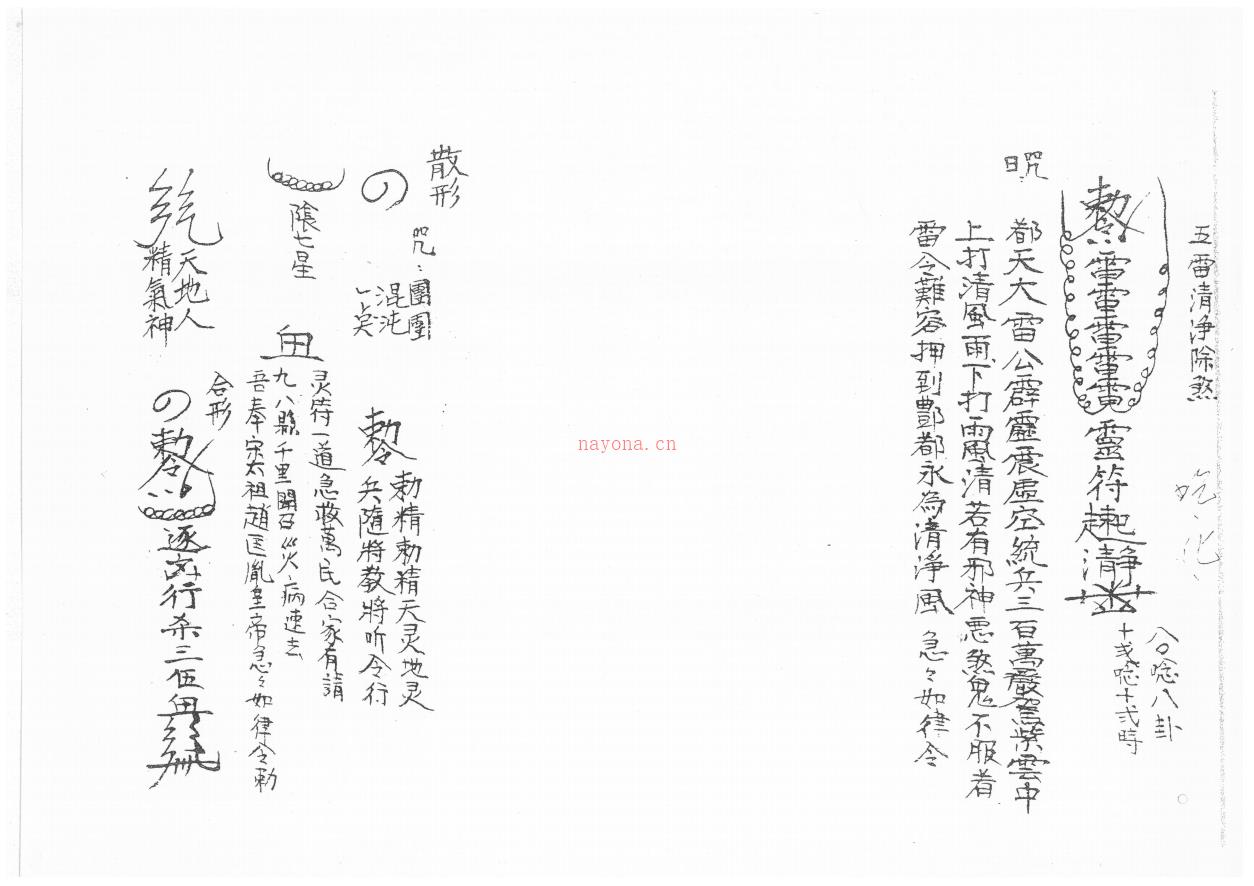 五雷清净除煞
勅令雷雷雷雷雷靈符起清靜
八口唸八卦
十弍唸十弍時
咒曰
都天大雷公霹靂震虛空統兵三百萬嚴駕紫雲中
上打清風雨下打雨風清若有邪神惡煞鬼不服者
雷令難容押到酆都永為清淨風 急々如律令
散形
咒:團團
混沌
勅令
勅精勅精天灵地灵
兵隨將教將听令行
隂七星
灵符一道急救萬民合家有請
九八縣千里開召災病速去
吾奉宋太祖趙匡胤皇帝急々如律令勅
天地人
精氣神
合形
勅令
逐 行杀三伍
nayona.cn